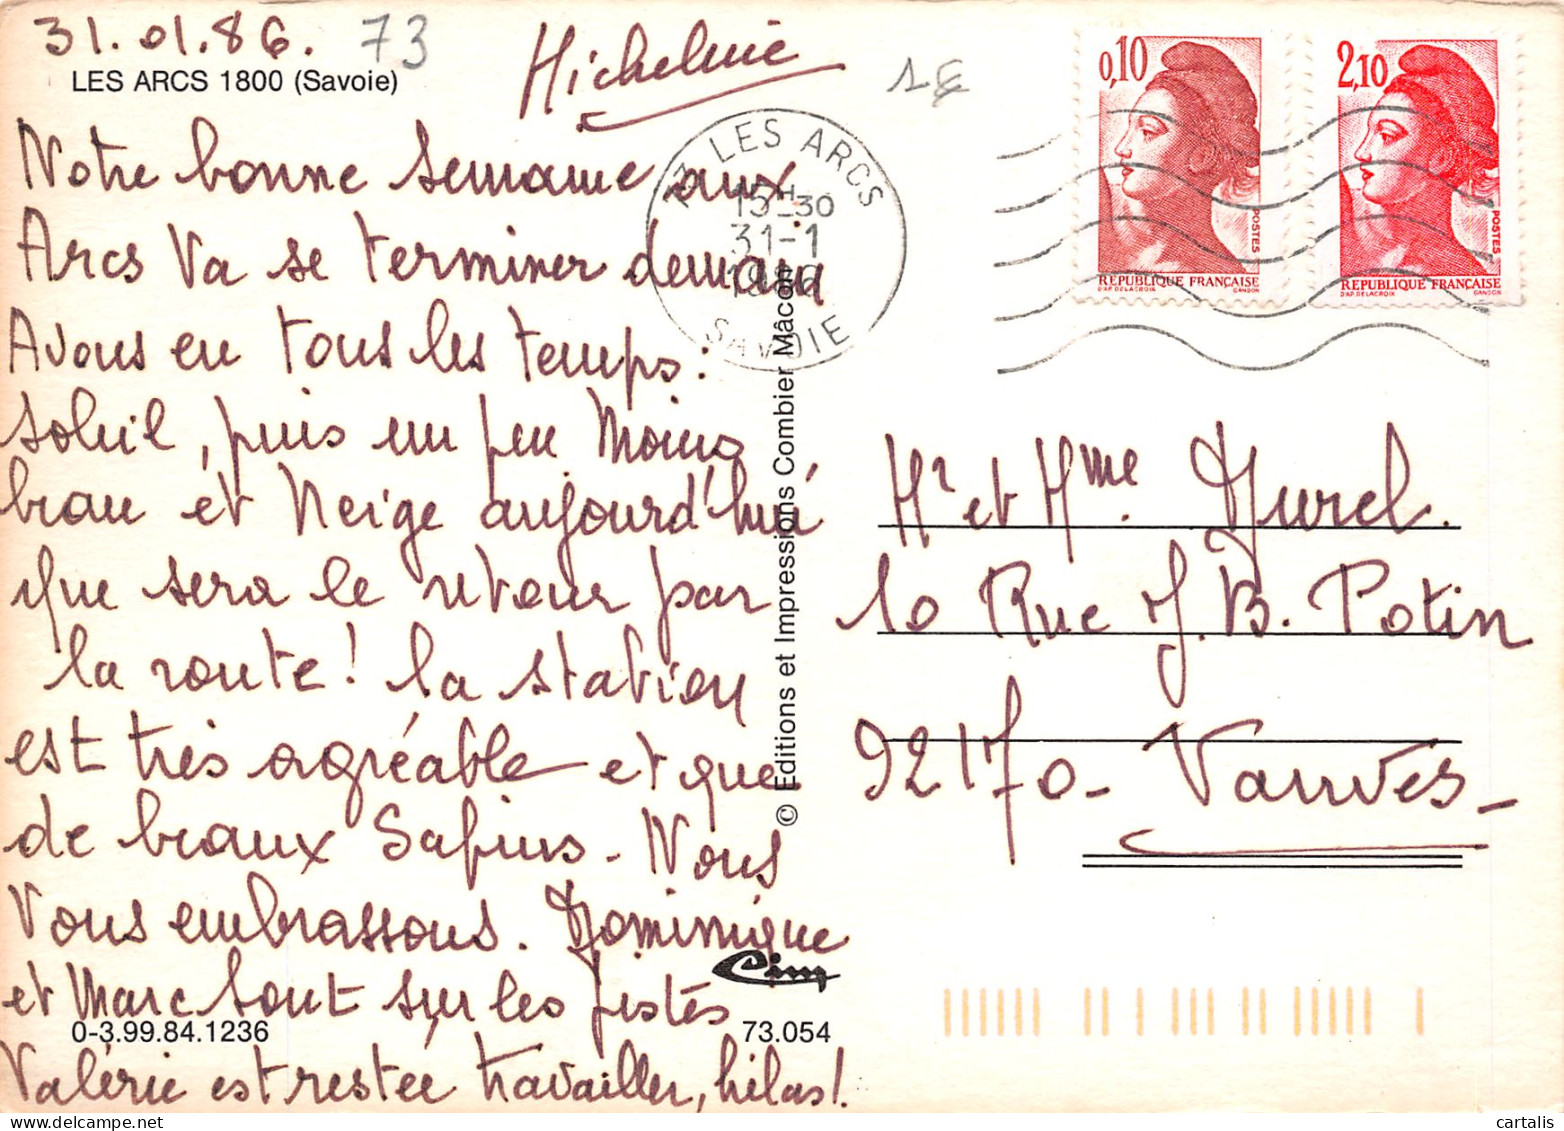 31.01.86. 73
LES ARCS 1800 (Savoie)
Micheline
1€
Notre bonne semaine aux
Arcs va se terminer demain
Avons eu tous les temps :
soleil, puis un peu moins
beau et neige aujourd'hui
que sera le retour par
la route ! la station
est très agréable et que
de beaux sapins - Nous
Vous embrassons. Dominique
et Marc sont sur les pistes
Valérie est restée travailler, hélas !
0-3.99.84.1236
73.054
Cim
© Editions et Impressions Combier Mâcon
73 LES ARCS
15H30
31-1
1986
SAVOIE
0,10
POSTES
REPUBLIQUE FRANÇAISE
D'AP. DELACROIX GANDON
2,10
POSTES
REPUBLIQUE FRANÇAISE
D'AP. DELACROIX GANDON
Mr et Mme Murel.
10 Rue J.B. Potin
92170 - Vanves -
cartalis